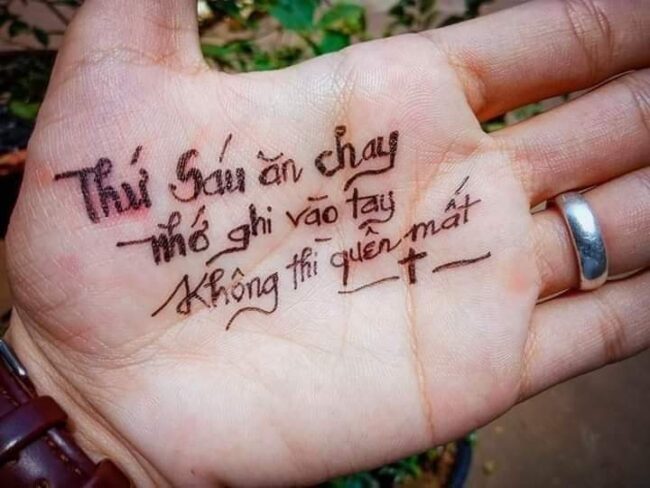 Thứ Sáu ăn chay
nhớ ghi vào tay
Không thì quên mất